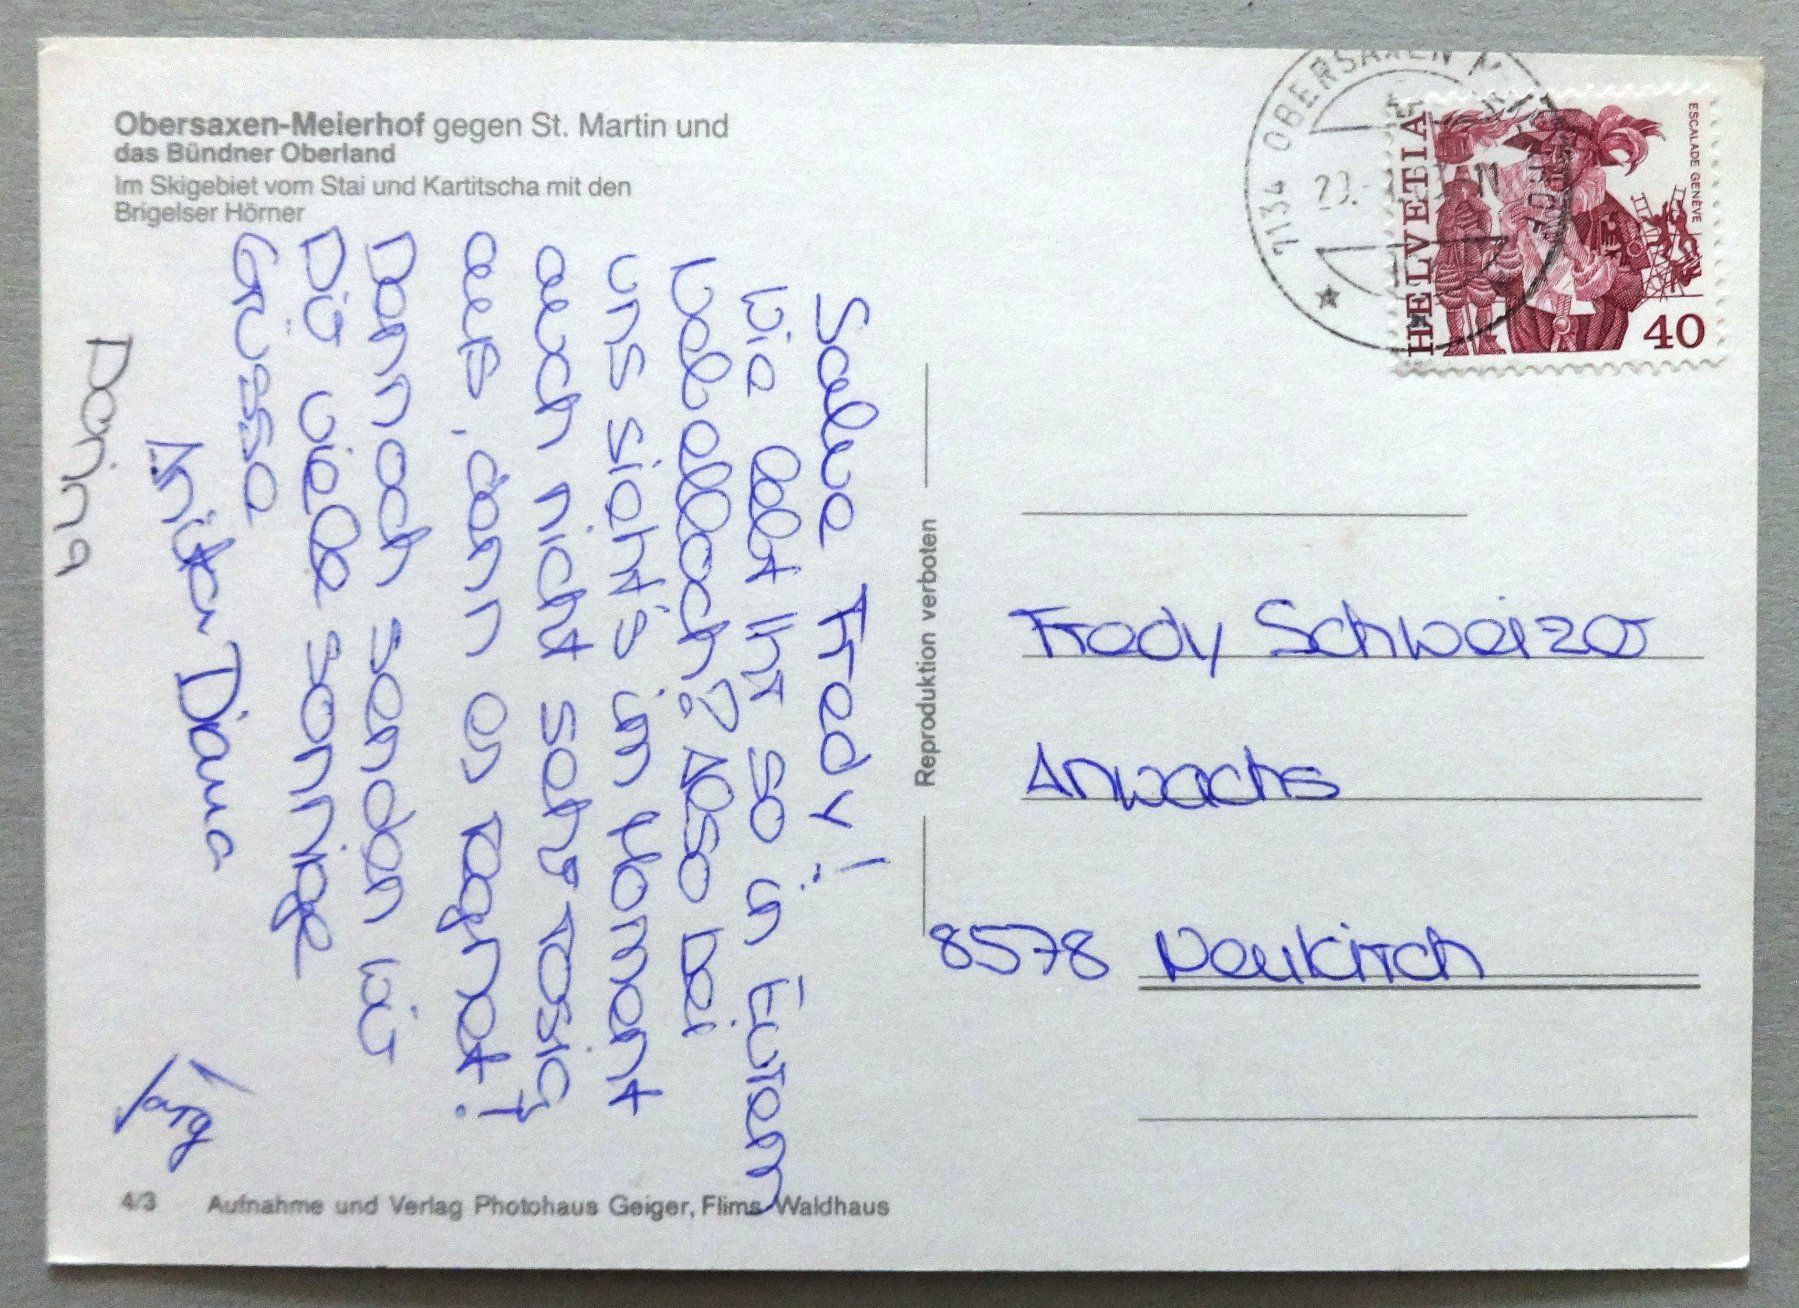 Obersaxen-Meierhof gegen St. Martin und
das Bündner Oberland
Im Skigebiet vom Stai und Kartitscha mit den
Brigelser Hörner
Salve Fredy!
Wie lebt Ihr so in Eurem
Wolelloch? Also bei
uns sieht's im Moment
auch nicht sehr rosig
aus, denn es regnet!
Dennoch senden wir
Dir viele sonnige
Grüsse
Anita Diana
Jürg
Dorina
7134 OBERSAXEN MEIERHOF
HELVETIA
ESCALADE GENÈVE
40
Reproduktion verboten
Fredy Schweizer
Anwachs
8578 Neukirch
4/3 Aufnahme und Verlag Photohaus Geiger, Flims Waldhaus